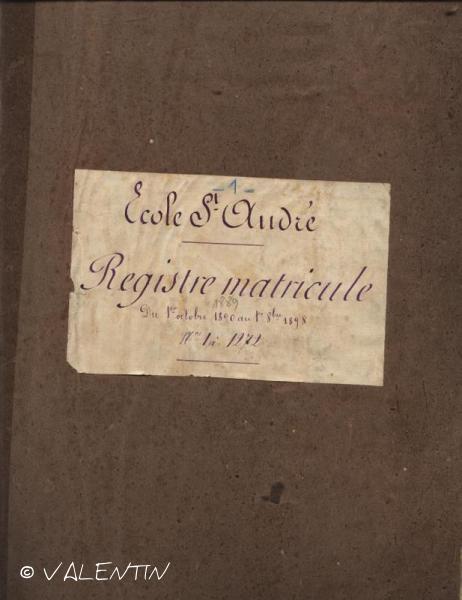 - 1 -
École St André
Registre matricule
1889
Du 1er octobre 1890 au 1er 8bre 1898
Nos 1 à 1272
© VALENTIN